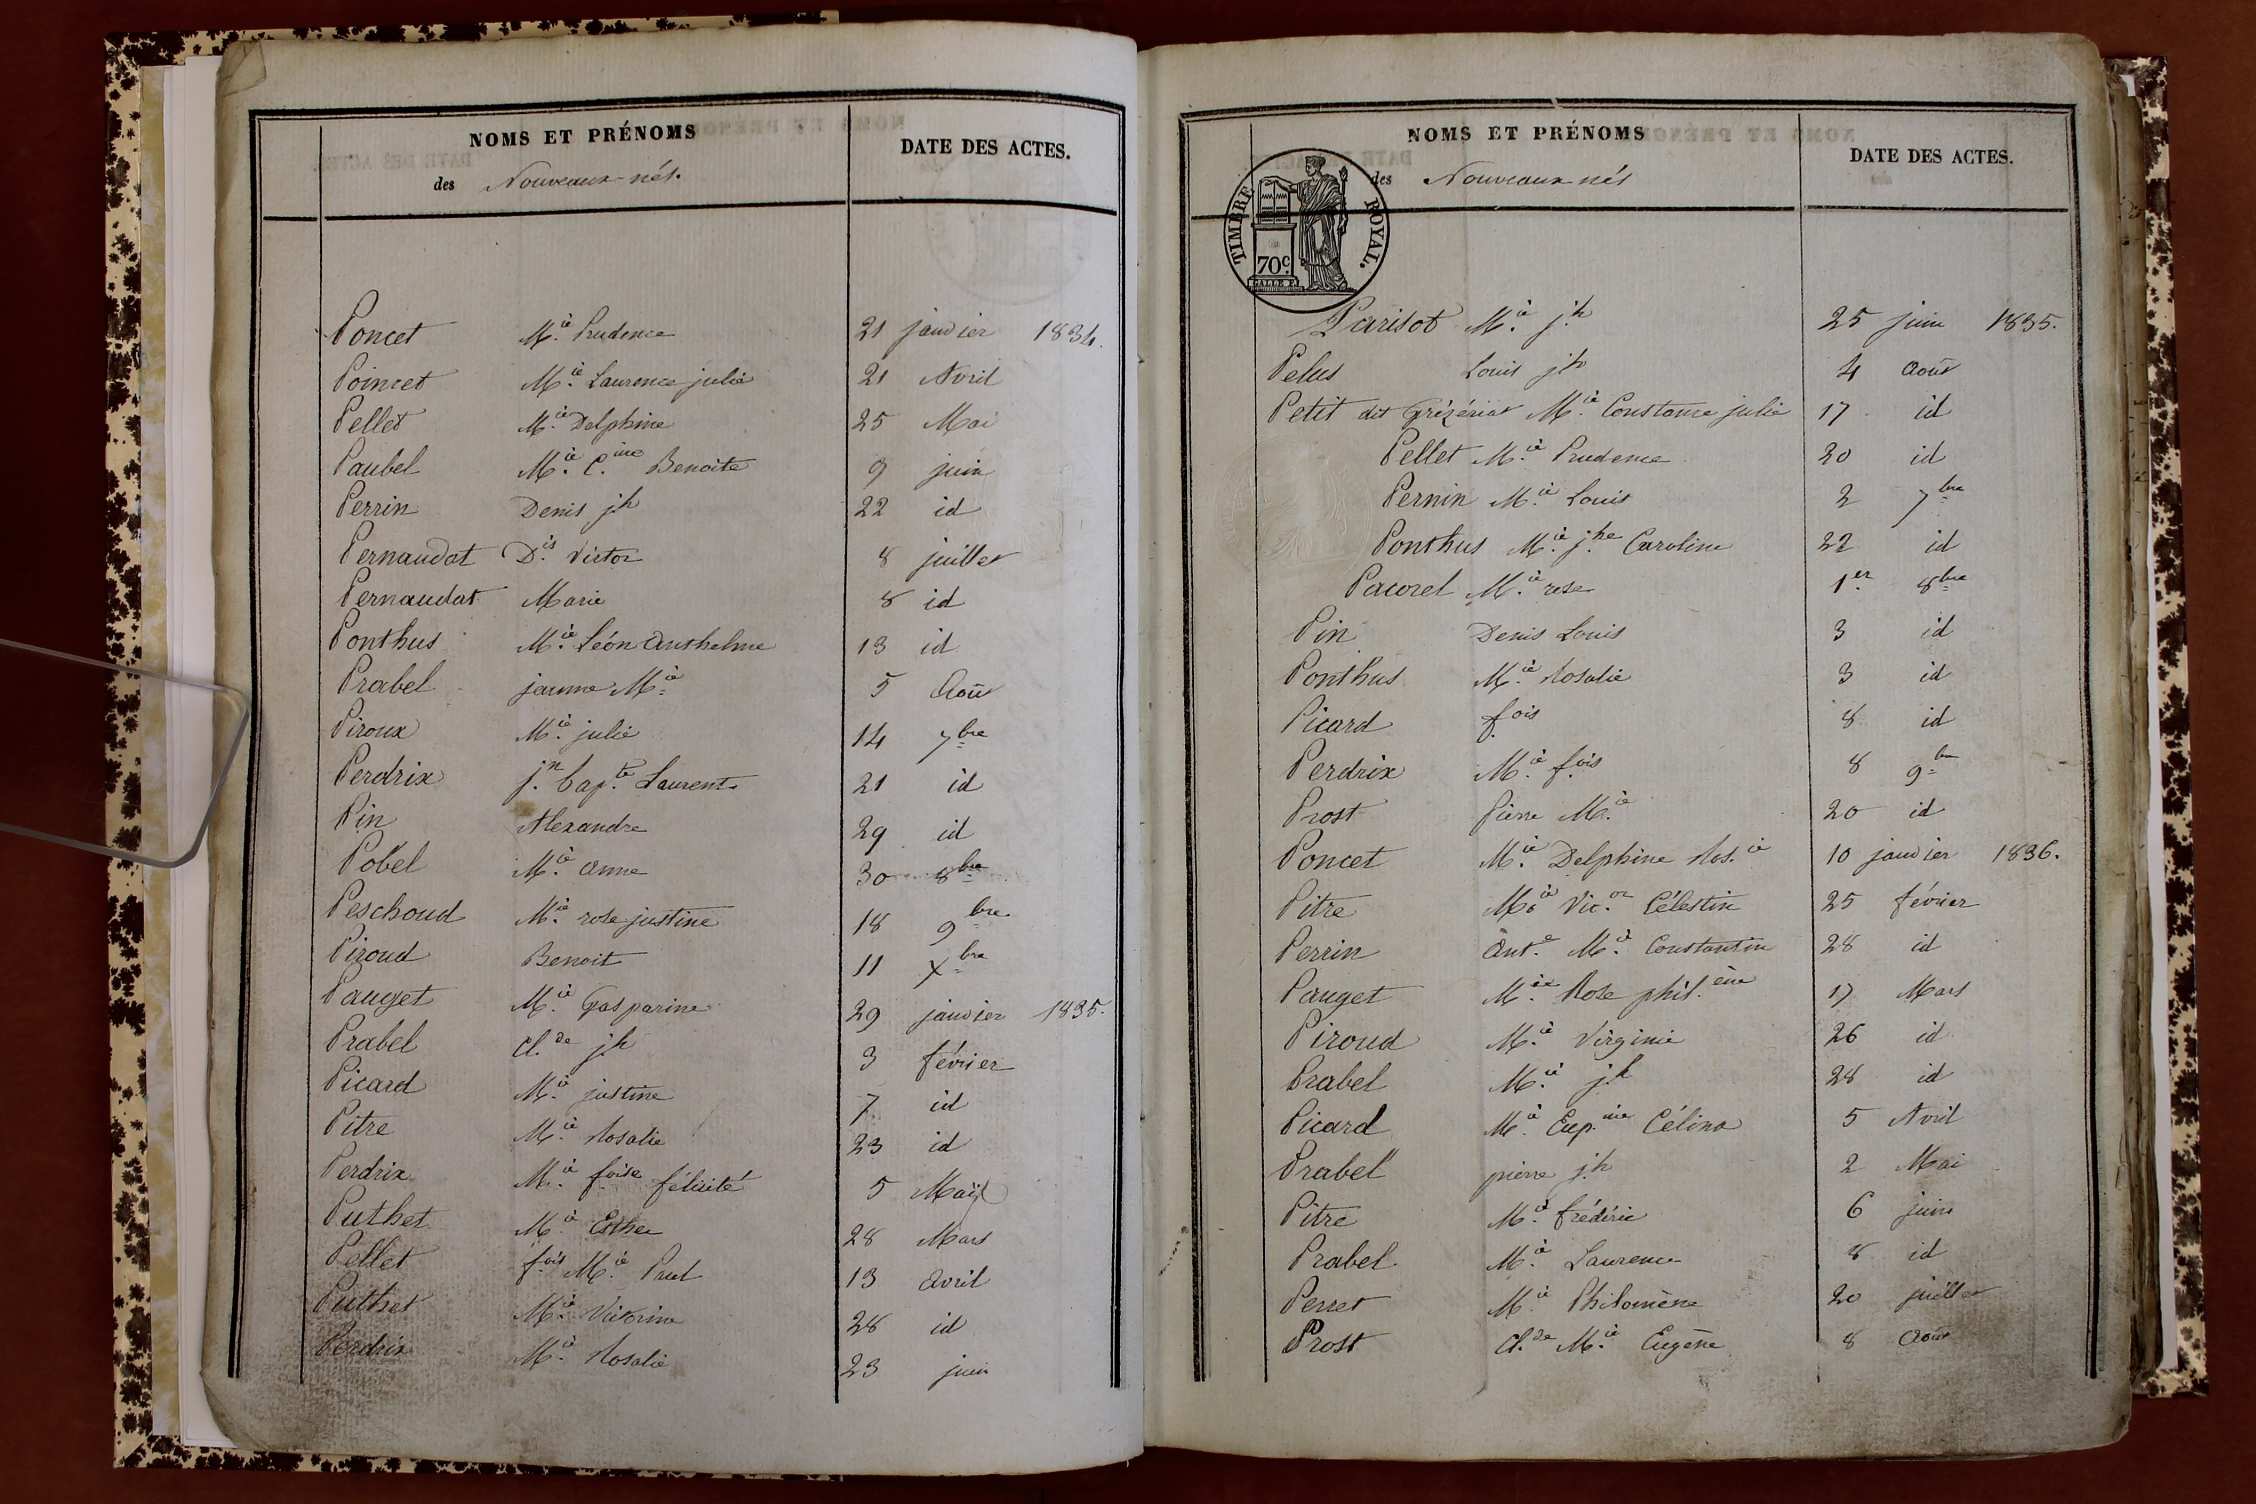 NOMS ET PRÉNOMS
DATE DES ACTES.
des Nouveaux-nés.
Poncet M.ie Prudence 21 janvier 1834.
Poincet M.ie Laurence julie 21 Avril
Pellet M.ie Delphine 25 Mai
Paubel M.ie C.ine Benoite 9 juin
Perrin Denis jh 22 id
Pernaudat D.is Victor 8 juillet
Pernaudat Marie 8 id
Ponthus M.ie Léon Anthelme 13 id
Prabel jeanne M.ie 5 Août
Piroux M.ie julie 14 7bre
Perdrix j.n bap.te Laurent 21 id
Pin Alexandre 29 id
Pobel M.ie anne 30 8bre
Peschoud M.ie rose justine 18 9bre
Piroud Benoit 11 Xbre
Pauget M.ie Gasparine 29 janvier 1835.
Prabel Cl.de jh 3 février
Picard M.ie justine 7 id
Pitre M.ie Rosalie 23 id
Perdrix M.ie foise félicité 5 Mai
Puthet M.ie Esther 28 Mars
Pellet f.ois M.ie Paul 13 avril
Puthet M.ie Victorine 28 id
Perdrix M.ie Rosalie 23 juin
NOMS ET PRÉNOMS
DATE DES ACTES.
des Nouveaux nés
TIMBRE ROYAL.
70c.
GALLE F.
Parisot M.ie j.h 25 juin 1835.
Pelus Louis jh 4 août
Petit dit Grézériat M.ie Constance julie 17 id
Pellet M.ie Prudence 20 id
Pernin M.ie Louis 2 7bre
Ponthus M.ie j.he Caroline 22 id
Pacorel M.ie rose 1er 8bre
Pin Denis Louis 3 id
Ponthus M.ie Rosalie 3 id
Picard f.ois 8 id
Perdrix M.ie f.ois 8 9bre
Prost pierre M.ie 20 id
Poncet M.ie Delphine Ros.ie 10 janvier 1836.
Pitre M.ie Vic.or Célestin 25 février
Perrin Ant.e M.ie Constantin 28 id
Pauget M.ie Rose phil.ène 17 Mars
Piroud M.ie Virginie 26 id
Prabel M.ie jh 28 id
Picard M.ie Eup.mie Célina 5 Avril
Prabel pierre jh 2 Mai
Pitre M.ie frédéric 6 juin
Prabel M.ie Laurence 8 id
Perret M.ie Philomène 20 juillet
Prost Cl.de M.ie Eugène 8 Août